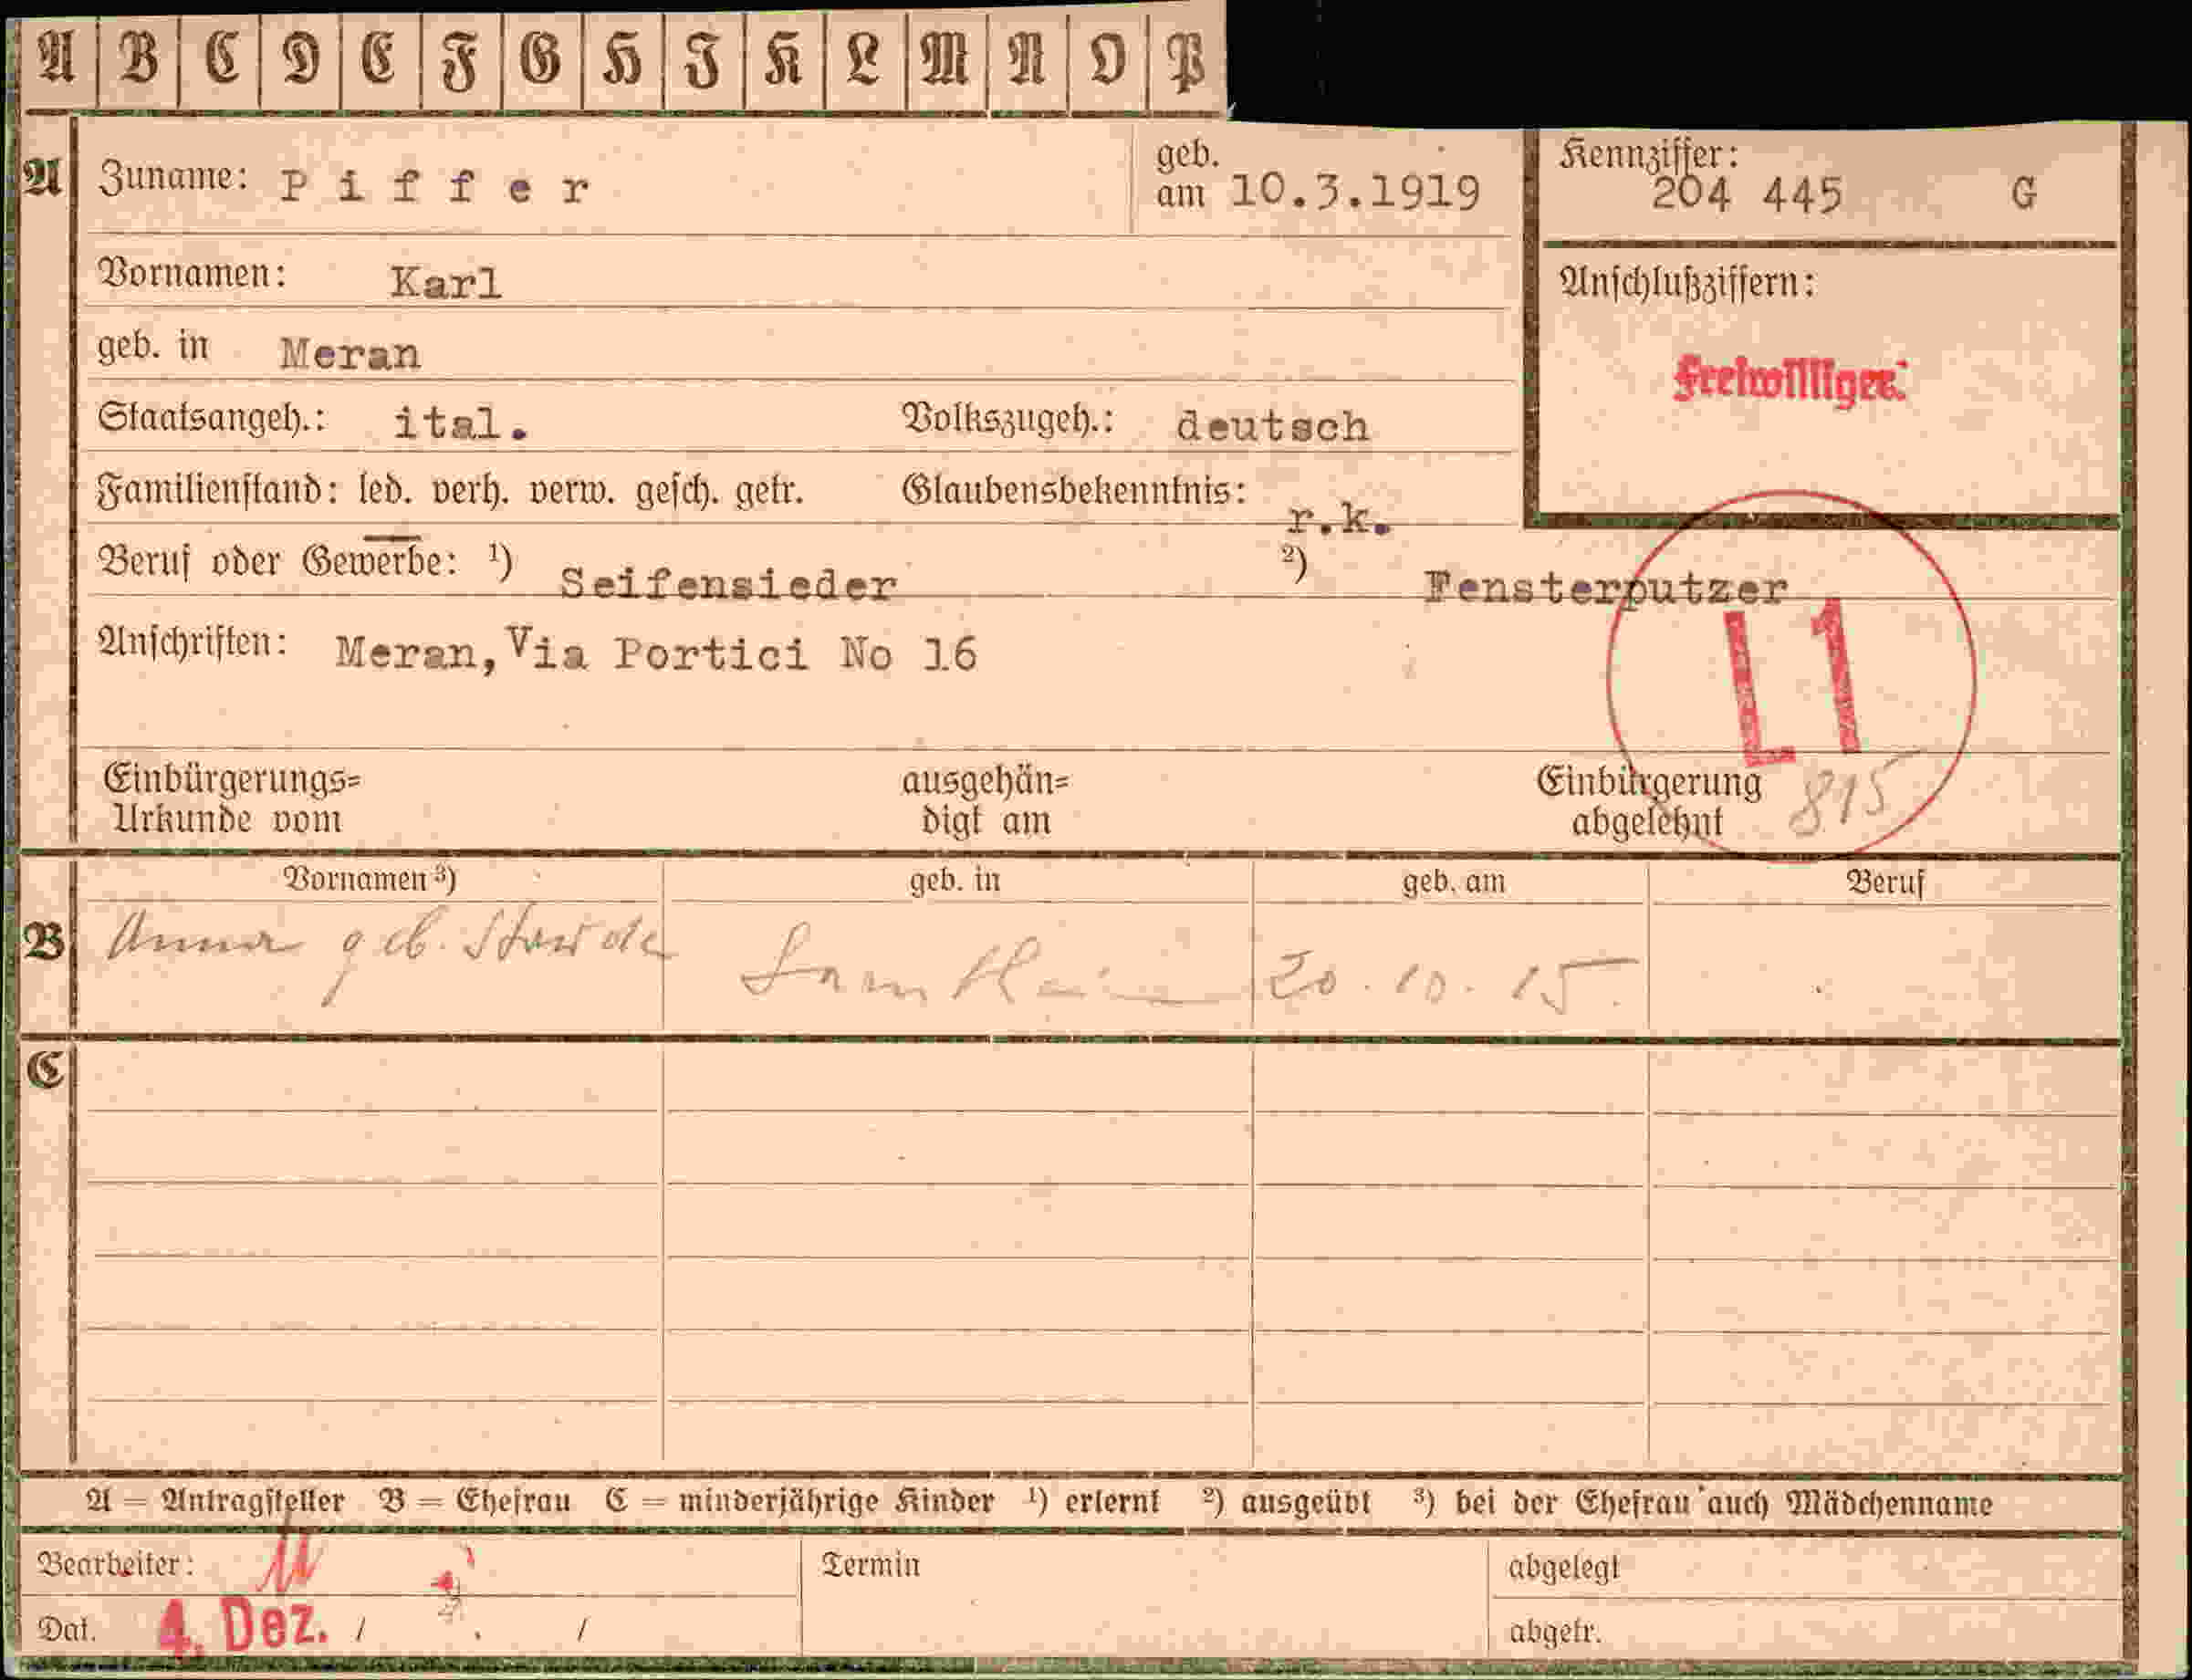 A B C D E F G H I K L M N O P
A Zuname: Piffer geb. am 10.3.1919 Kennziffer: 204 445 G
Vornamen: Karl Anschlußziffern:
geb. in Meran
Freiwilliger.
Staatsangeh.: ital. Volkszugeh.: deutsch
Familienstand: led. verh. verw. gesch. getr. Glaubensbekenntnis: r.k.
Beruf oder Gewerbe: ¹) Seifensieder ²) Fensterputzer
Anschriften: Meran, Via Portici No 16
L 1
Einbürgerungs= ausgehän= Einbürgerung
Urkunde vom digt am abgelehnt 815
Vornamen ³) geb. in geb. am Beruf
B Anna geb. 20.10.15.
C
A = Antragsteller B = Ehefrau C = minderjährige Kinder ¹) erlernt ²) ausgeübt ³) bei der Ehefrau auch Mädchenname
Bearbeiter: Termin abgelegt
Dat. 4. Dez. / / abgetr.